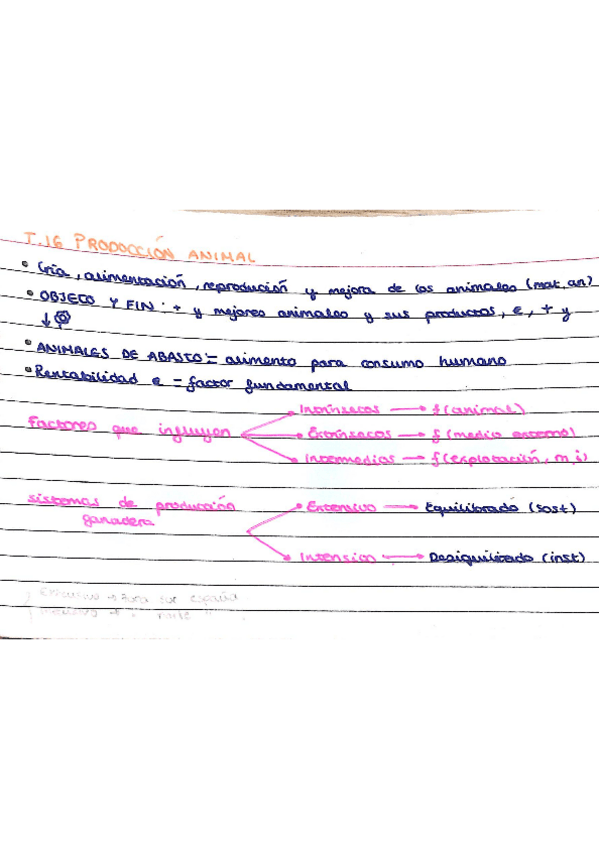 T.16 PRODUCCIÓN ANIMAL
• Cría, alimentación, reproducción y mejora de los animales (mat. an)
• OBJETO Y FIN: + y mejores animales y sus productos, e, + y
↓
• ANIMALES DE ABASTO = alimento para consumo humano
• Rentabilidad e = factor fundamental
Factores que influyen
Intrínsecos → f(animal)
Extrínsecos → f(medio externo)
Intermedios → f(explotación, m, i)
sistemas de producción ganadera
Extensivo → Equilibrado (sost)
Intensivo → Desiquilibrado (inst)
Extensivo → sur españa
norte